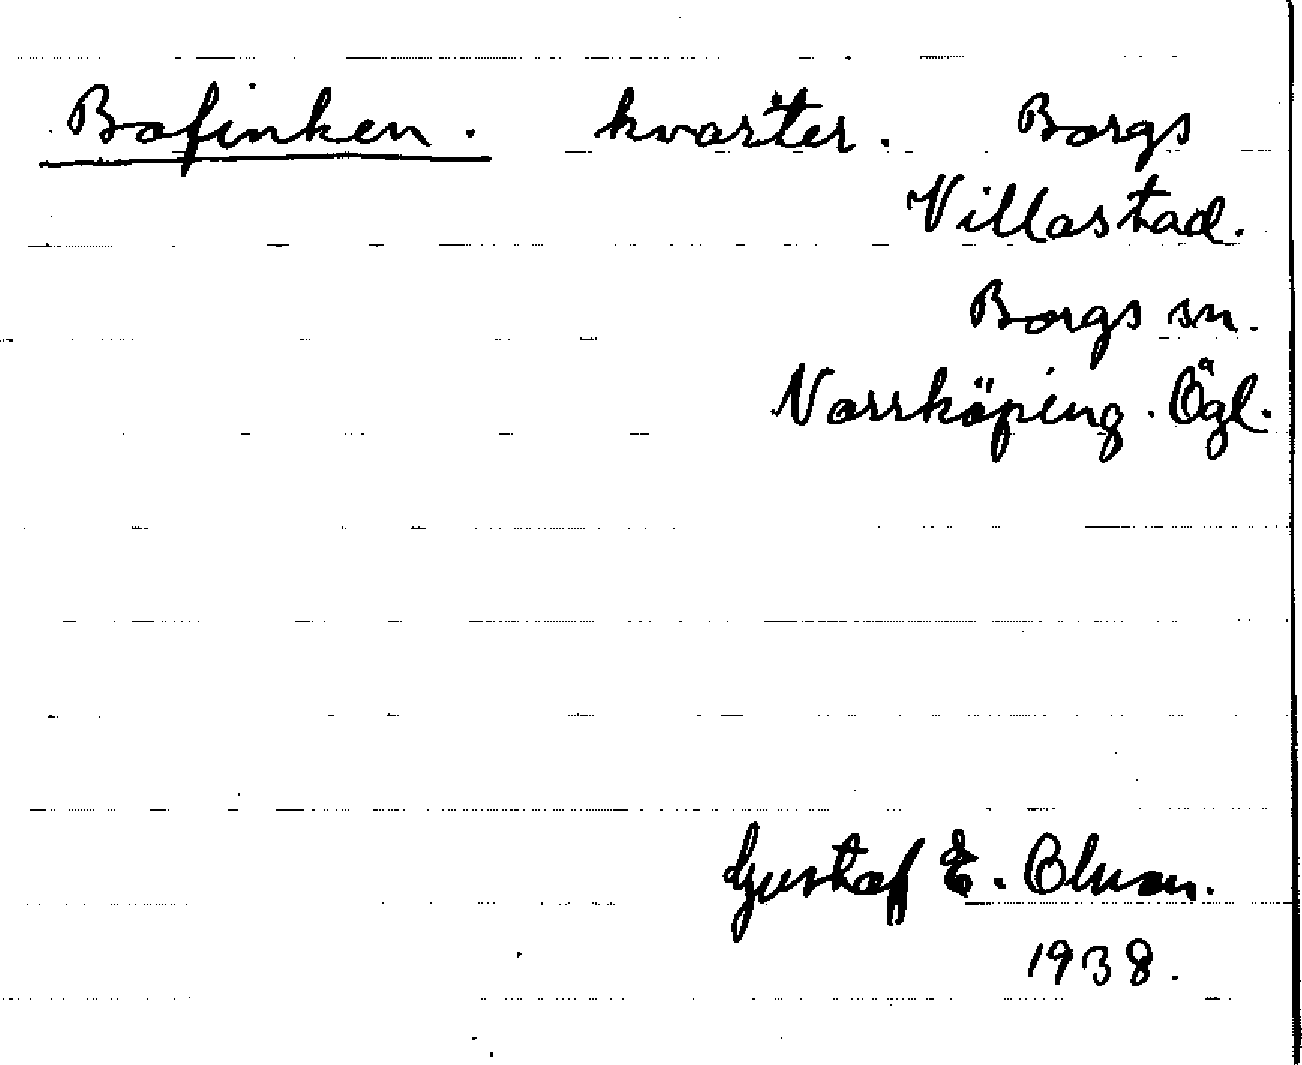 Bofinken. kvarter. Borgs
Villastad.
Borgs sn.
Norrköping. Ögl.
Gustaf E. Olsson.
1938.